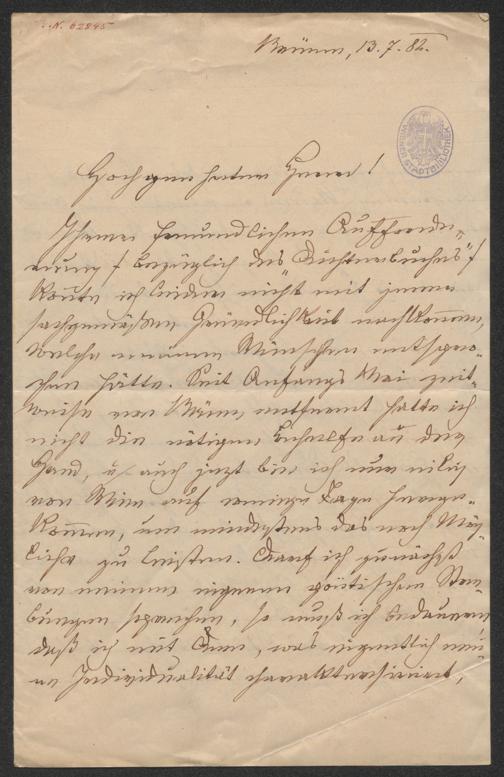 I.N. 62895
Brünn, 13.7.82.
WIENER STADTBIBLIOTHEK
Hochgeehrter Herr!
Ihrer freundlichen Aufforde-
rung / bezüglich des "Dichterbuches" /
konnte ich leider nicht mit jener
sachgemäßen Gründlichkeit nachkommen,
welche meinen Wünschen entspro-
chen hätte. Seit Anfangs Mai zeit-
weise von Wien entfernt hatte ich
nicht die nötigen Behelfe an der
Hand, u. auch jezt bin ich nur eilig
von Wien auf wenige Tage herge-
kommen, um mindestens das noch Mög-
liche zu leisten. Darf ich zunächst
von meinen eigenen poetischen Stre-
bungen sprechen, so muß ich bedauern,
daß ich mit dem, was eigentlich mei-
ne Individualität charakterisiert,